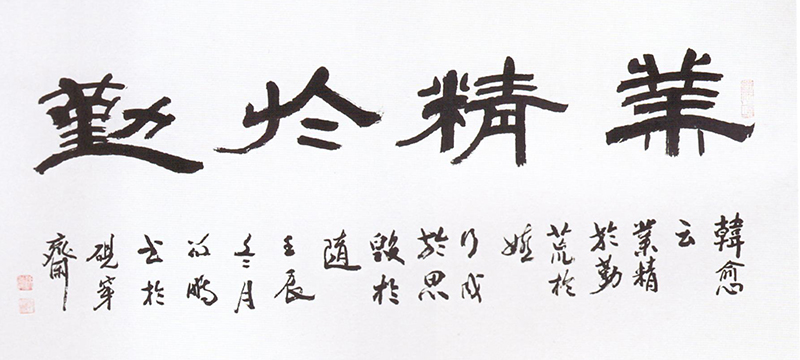 業精於勤
韓愈
云
業精
於勤
荒於
嬉
行成
於思
毀於
隨
壬辰
冬月
鵬
書於
硯
齋